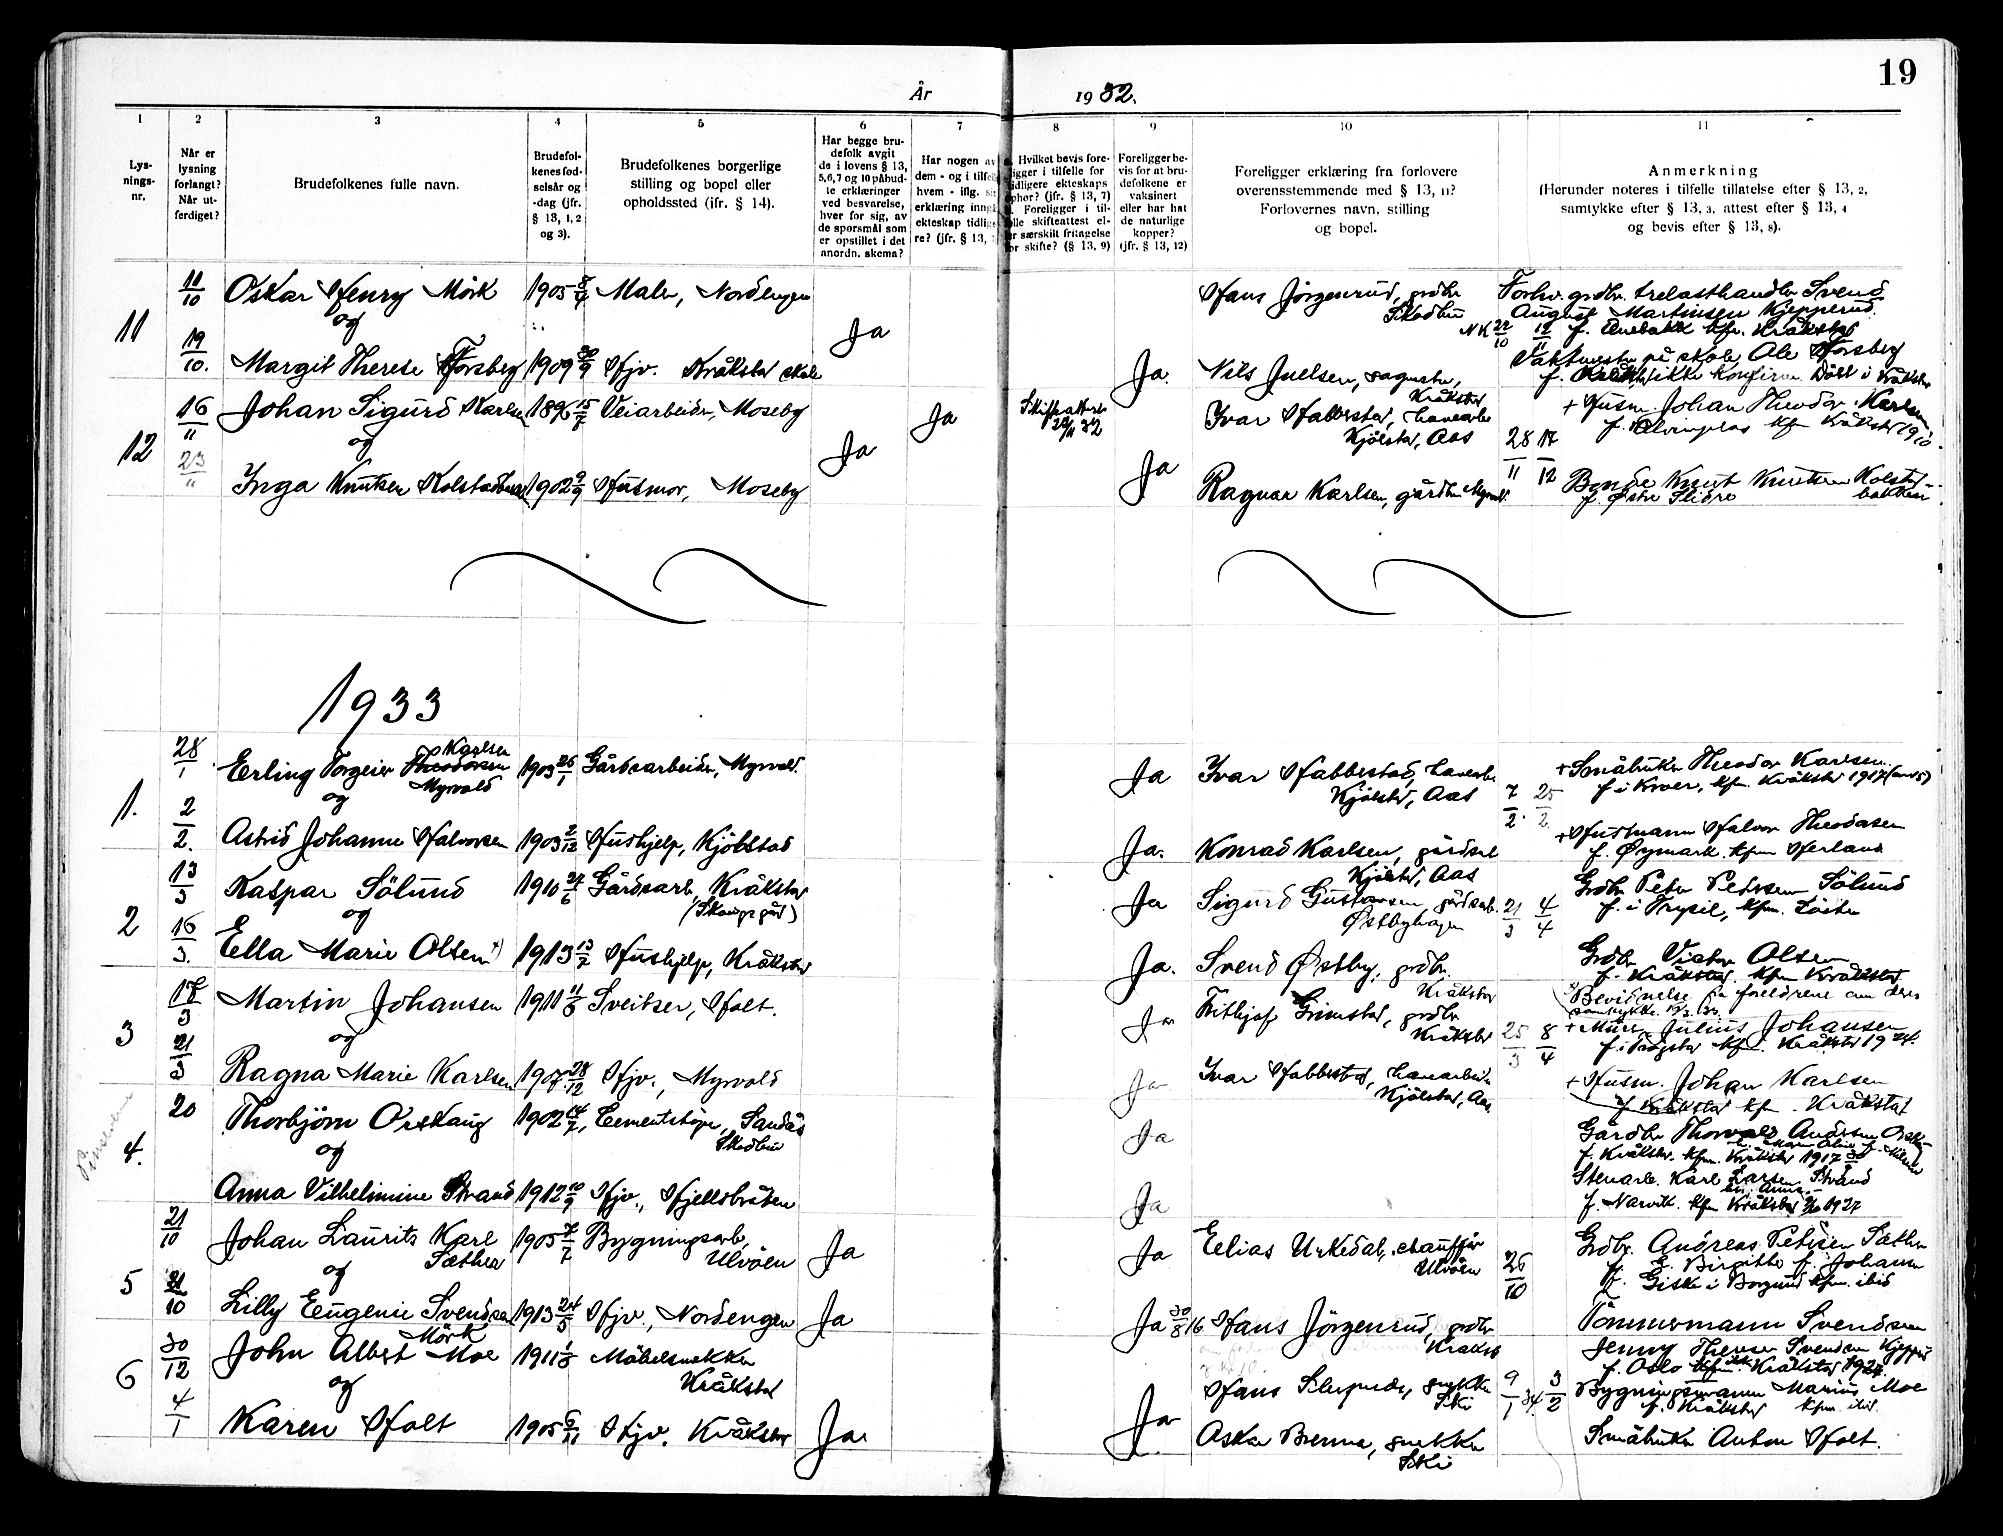 19
År 1932.
1 2 3 4 5 6 7 8 9 10 11
Lysningsnr.
Når er lysning forlangt? Når utferdiget?
Brudefolkenes fulle navn.
Brudefolkenes fødselsår og -dag (jfr. § 13, 1, 2 og 3).
Brudefolkenes borgerlige stilling og bopel eller opholdssted (jfr. § 14).
Har begge brudefolk avgit de i lovens § 13, 5, 6, 7 og 10 påbudte erklæringer ved besvarelse, hver for sig, av de spørsmål som er opstillet i det anordn. skema?
Har nogen av dem - og i tilfelle hvem - iflg. sin erklæring inngått ekteskap tidligere? (jfr. § 13,
Hvilket bevis foreligger i tilfelle for tidligere ekteskaps ophør? (jfr. § 13, 7) Foreligger i tilfelle skifteattest eller særskilt fritagelse for skifte? (§ 13, 9)
Foreligger bevis for at brudefolkene er vaksinert eller har hat de naturlige kopper? (jfr. § 13, 12)
Foreligger erklæring fra forlovere overensstemmende med § 13, 11? Forlovernes navn, stilling og bopel.
Anmerkning (Herunder noteres i tilfelle tillatelse efter § 13, 2, samtykke efter § 13, 3, attest efter § 13, 4 og bevis efter § 13, 8).
11 11/10 Oskar Henry Mörk 1905 Maler, Nordengen Ja Hans Jørgenrud, grdbr. Skodbu Forhv. grdbr. trelasthandler Svend August Martinsen Kjepperud
og
19/10. Margit Therese Forsberg 1909 30/9 Hjv. Kråkstad skole Ja. Nils Juelsen, Kråkstad Vaktmester på skole Ole Forsberg
12 16/11 Johan Sigurd Karlsen 1896 15/7 Veiarbeider, Moseby Ja Ja Skifteattest Ivar Habbestad, Kjølstad, Aas 28/11 17/12 + Husm. Johan Theodor Karlsen Kråkstad 1910
og
23/11 Inga Knutsen Kolstadbakken 1902 9/9 Husmor, Moseby Ja Ragnar Karlsen, gårdbr. Myrvold Bonde Knut Knutsen Kolstadbakken f. Østre Slidre
1933
1. 28/1 Erling Torgeir Theodorsen Karlsen Myrvold 1903 26/1 Gårdsarbeider, Myrvold. Ja Ivar Habbestad, Kjølstad, Aas 7/2 25/2 + Småbruker Theodor Karlsen f. i Kroer, kfm. Kråkstad 1917
og
2/2. Astrid Johanne Halvorsen 1903 2/12 Hushjelp, Kjölstad Ja. Konrad Karlsen, Kjølstad, Aas + Husmann Halvor Theodorsen f. Øymark.
2 13/3 Kaspar Sölund 1910 27/6 Gårdsarb, Kråkstad Ja Sigurd Gustavsen, gårdsarb. Østbyhagen 21/3 4/4 Grdbr. Peter Petersen Sölund f. i Trysil, kfm. Löiten
og
16/3. Ella Marie Olsen x) 1913 13/7 Hushjelp, Kråkstad Ja. Svend Østby, grdbr. Kråkstad Grdbr. Victor Olsen f. Kråkstad kfm Kråkstad
x) Bevidnelse fra foreldrene om deres samtykke
3 17/3 Martin Johansen 1911 Sveitser, Holt. Ja Frithjof Grimstad, grdbr. Kråkstad 25/3 8/4 + Murer Julius Johansen
og
21/3 Ragna Marie Karlsen 1907 28/12 Hjv., Myrvold Ja Ivar Habbestad, havearbeider Kjølstad, Aas + Husm. Johan Karlsen f. Kråkstad kfm. Kråkstad
4. 20 Thorbjörn Orskaug 1902 14/7, Cementstøper, Sandås Skodbu Ja Gårdbr. Thorvald Andersen f. Kråkstad. kfm. Kråkstad 1917
og
Anna Vilhelmine Strand 1912 10/9 Hjv., Hjellbråten Ja Stenarb. Karl Larsen Strand f. Narvik. kfm Kråkstad 1927
5 21/10 Johan Laurits Karl Sæther 1905 7/7 Bygningsarb, Ulvöen Ja Ja Elias Urkedal, chauffør Ulvöen 26/10 Grdbr. Andreas Petersen Sæther Birgitte f. Johansen f. Giske i Borgund kfm. ibid
og
21/10 Lilly Eugenie Svendsen 1913 24/5 Hjv., Nordengen Ja Ja Hans Jörgenrud, grdbr. Kråkst Tömmermann Svendsen
6 30/12 John Albert Moe Mörk 1911 Möbelsnekker Kråkstad Hans snekker Ski 9/1 34. 3/2 Bygningsmann Marius Moe f. Kråkstad kfm. ibid.
og
4/1 Karen Holt 1905 Hjv. Kråkstad Ja Ja Asker Brenna, snekker Ski Småbruker Anton Holt.